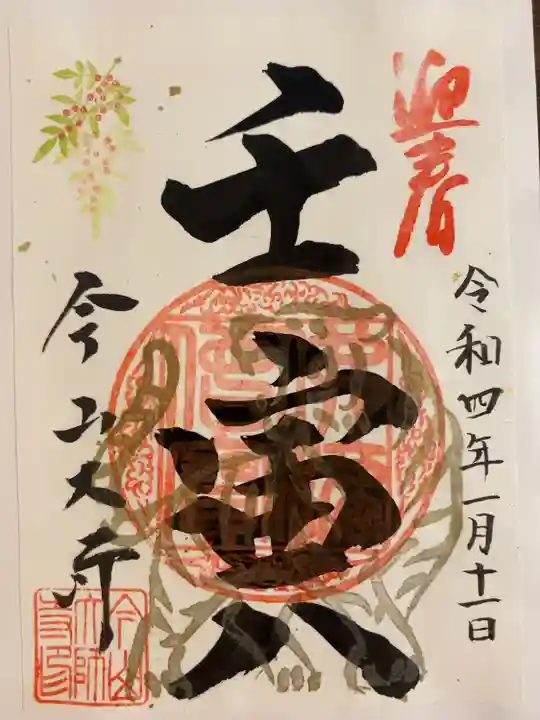 迎春
令和四年一月十一日
壬寅
今山大寺
今山
大師
寺印